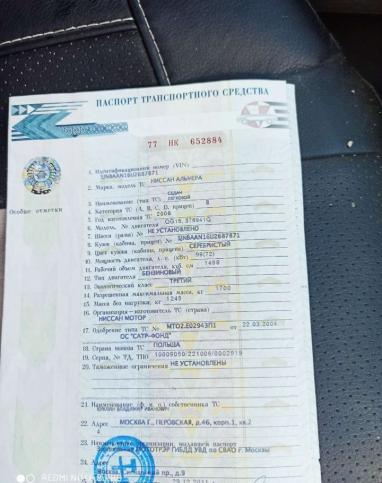 ПАСПОРТ ТРАНСПОРТНОГО СРЕДСТВА
77 НК 652884
Особые отметки
1. Идентификационный номер (VIN)
SJNBAAN16U2687871
2. Марка, модель ТС НИССАН АЛЬМЕРА
СЕДАН
3. Наименование (тип ТС) ЛЕГКОВОЙ
4. Категория ТС (A, B, C, D, прицеп) B
5. Год изготовления ТС 2006
6. Модель, № двигателя QG15, 378941Q
7. Шасси (рама) № НЕ УСТАНОВЛЕНО
8. Кузов (кабина, прицеп) № SJNBAAN16U2687871
9. Цвет кузова (кабины, прицепа) СЕРЕБРИСТЫЙ
10. Мощность двигателя, л. с. (кВт) 98(72)
11. Рабочий объем двигателя, куб. см 1498
12. Тип двигателя БЕНЗИНОВЫЙ
13. Экологический класс ТРЕТИЙ
14. Разрешенная максимальная масса, кг 1700
15. Масса без нагрузки, кг 1245
16. Организация – изготовитель ТС (страна)
НИССАН МОТОР
17. Одобрение типа ТС № МТ02.Е02943П1 от 22.03.2004
ОС "САТР-ФОНД"
18. Страна вывоза ТС ПОЛЬША
19. Серия, № ТД, ТПО 10009050/221006/0002919
20. Таможенные ограничения НЕ УСТАНОВЛЕНЫ
21. Наименование (ф. и. о.) собственника ТС
ВЛАДИМИР ИВАНОВИЧ
22. Адрес МОСКВА Г., ПЕРОВСКАЯ, д.46, корп.1, кв.2
23. Наименование организации, выдавшей паспорт
МОТОТРЭР ГИБДД УВД по СВАО г. Москвы
24. Адрес
д.9
REDMI NO